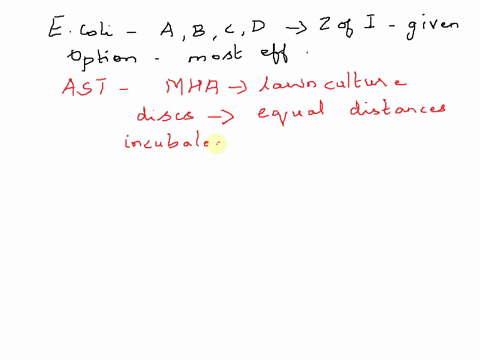 E. Coli - A, B, C, D → Z of I - given
option - most eff.
AST - MHA → lawn culture
discs → equal distances
incubate.